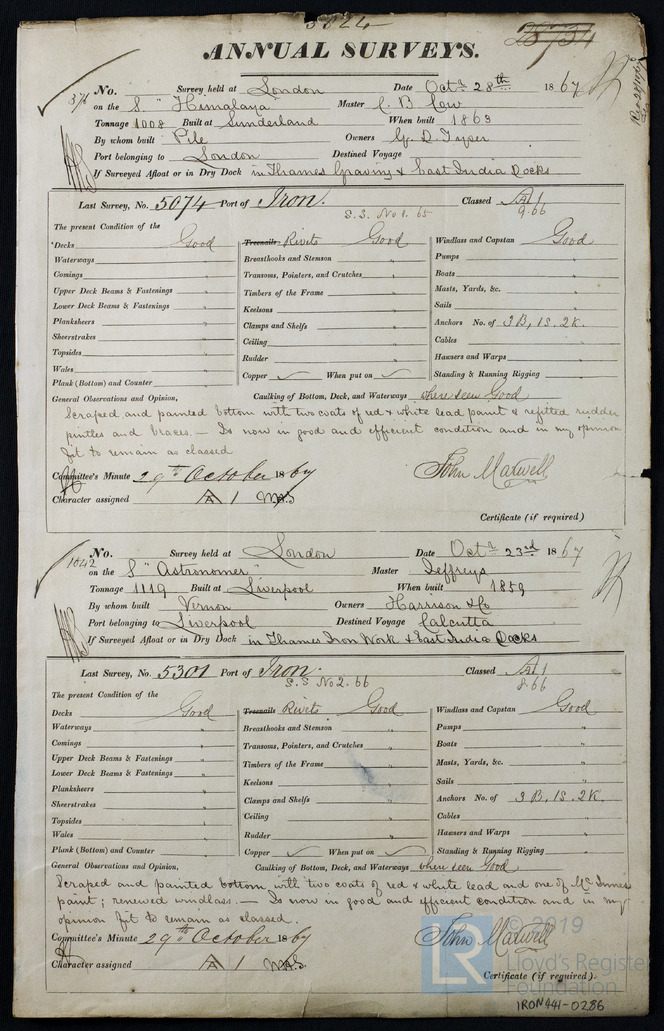 5624
28734
ANNUAL SURVEYS.
376 No. Survey held at London Date Oct.r 28th 1867
on the S. "Himalaya" Master C. B. Cow
Tonnage 1008 Built at Sunderland When built 1863
By whom built Pile Owners G. D. Tyser
Port belonging to London Destined Voyage
If Surveyed Afloat or in Dry Dock in Thames Graving & East India Docks
Last Survey, No. 5074 Port of Iron. Classed A1
S.S. No 1. 65 9.66
The present Condition of the
Decks Good Treenails Rivets Good Windlass and Capstan Good
Waterways " Breasthooks and Stemson " Pumps "
Comings " Transoms, Pointers, and Crutches " Boats "
Upper Deck Beams & Fastenings " Timbers of the Frame " Masts, Yards, &c. "
Lower Deck Beams & Fastenings " Keelsons " Sails "
Planksheers " Clamps and Shelfs " Anchors No. of 3B, 1S. 2K.
Sheerstrakes " Ceiling " Cables "
Topsides " Rudder " Hawsers and Warps "
Wales " Copper ✓ When put on ✓ Standing & Running Rigging "
Plank (Bottom) and Counter "
General Observations and Opinion, Caulking of Bottom, Deck, and Waterways where seen Good
Scraped and painted bottom with two coats of red & white lead paint & refitted rudder
pintles and braces. — Is now in good and efficient condition and in my opinion
fit to remain as classed
Committee's Minute 29th October 1867 John Maxwell
Character assigned A 1
Certificate (if required)
1042 No. Survey held at London Date Oct.r 23rd 1867
on the S "Astronomer" Master Jeffreys
Tonnage 1119 Built at Liverpool When built 1859
By whom built Vernon Owners Harrison & Co
Port belonging to Liverpool Destined Voyage Calcutta
If Surveyed Afloat or in Dry Dock in Thames Iron Work & East India Docks
Last Survey, No. 5301 Port of Iron. Classed A1
S.S No 2. 66 8.66
The present Condition of the
Decks Good Treenails Rivets Good Windlass and Capstan Good
Waterways " Breasthooks and Stemson " Pumps "
Comings " Transoms, Pointers, and Crutches " Boats "
Upper Deck Beams & Fastenings " Timbers of the Frame " Masts, Yards, &c. "
Lower Deck Beams & Fastenings " Keelsons " Sails "
Planksheers " Clamps and Shelfs " Anchors No. of 3B, 1S. 2K.
Sheerstrakes " Ceiling " Cables "
Topsides " Rudder " Hawsers and Warps "
Wales " Copper ✓ When put on ✓ Standing & Running Rigging "
Plank (Bottom) and Counter "
General Observations and Opinion, Caulking of Bottom, Deck, and Waterways where seen Good
Scraped and painted bottom with two coats of red & white lead and one of McInnes
paint; renewed windlass. — Is now in good and efficient condition and in my
opinion fit to remain as classed.
Committee's Minute 29th October 1867 John Maxwell
Character assigned A 1
Certificate (if required).
© 2019
LR Lloyd's Register
Foundation
IRON441-0286